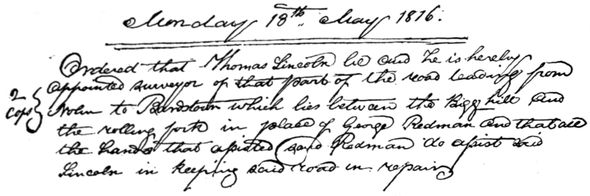 Monday 18th May 1816.
Ordered that Thomas Lincoln be and he is hereby
appointed surveyor of that part of the road leading from
2 Copy Nolin to Bardstown which lies between the Bigg hill and
the rolling fork in place of George Redman and that all
the hands that assisted said Redman do assist said
Lincoln in keeping said road in repair